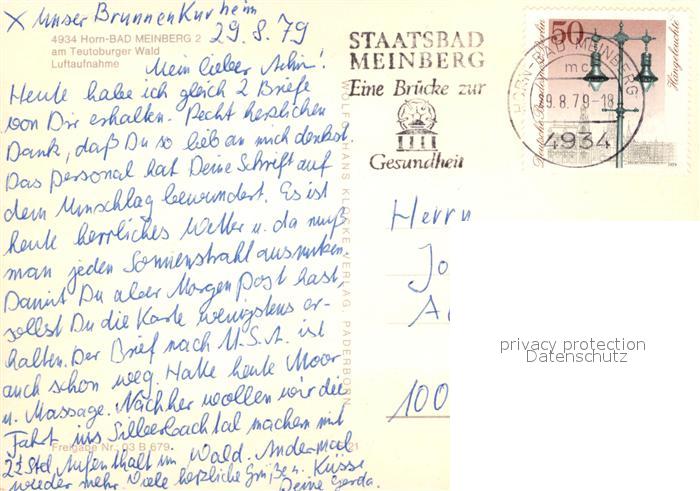 x unser Brunnen Kurheim
29.8.79
4934 Horn-BAD MEINBERG 2
am Teutoburger Wald
Luftaufnahme
Mein lieber Achim!
Heute habe ich gleich 2 Briefe
von Dir erhalten. Recht herzlichen
Dank, daß Du so lieb an mich denkst.
Das Personal hat Deine Schrift auf
dem Umschlag bewundert. Es ist
heute herrliches Wetter u. da muß
man jeden Sonnenstrahl ausnutzen.
Damit Du aber Morgen Post hast,
sollst Du die Karte wenigstens er-
halten. Der Brief nach U.S.A. ist
auch schon weg. Hatte heute Moor
u. Massage. Nachher wollen wir die
Fahrt ins Silberbachtal machen mit
2½ Std Aufenthalt im Wald. Andermal
wieder mehr Viele herzliche Grüße u. Küsse
Deine Gerda.
Freigabe Nr. 03 B 679
21
WOLFGANG HANS KLOCKE VERLAG, PADERBORN
STAATSBAD
MEINBERG
Eine Brücke zur
Gesundheit
HORN-BAD MEINBERG
mc
29.8.79-18
4934
50
Deutsche Bundespost Berlin
Hängeleuchte
1979
Herrn
Jo
A
100
privacy protection
Datenschutz